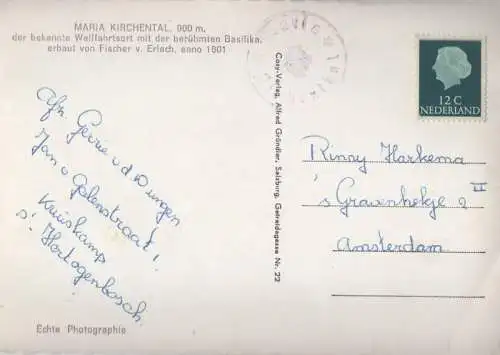 MARIA KIRCHENTAL, 900 m,
der bekannte Wallfahrtsort mit der berühmten Basilika,
erbaut von Fischer v. Erlach, anno 1801
12 C
NEDERLAND
Cosy-Verlag, Alfred Gründler, Salzburg, Getreidegasse Nr. 22
Afz. Gerrie v d Dungen
Jan v Galenstraat 1
Kruiskamp
s' Hertogenbosch.
Rinny Harkema
's Gravenhekje 2 II
Amsterdam
Echte Photographie